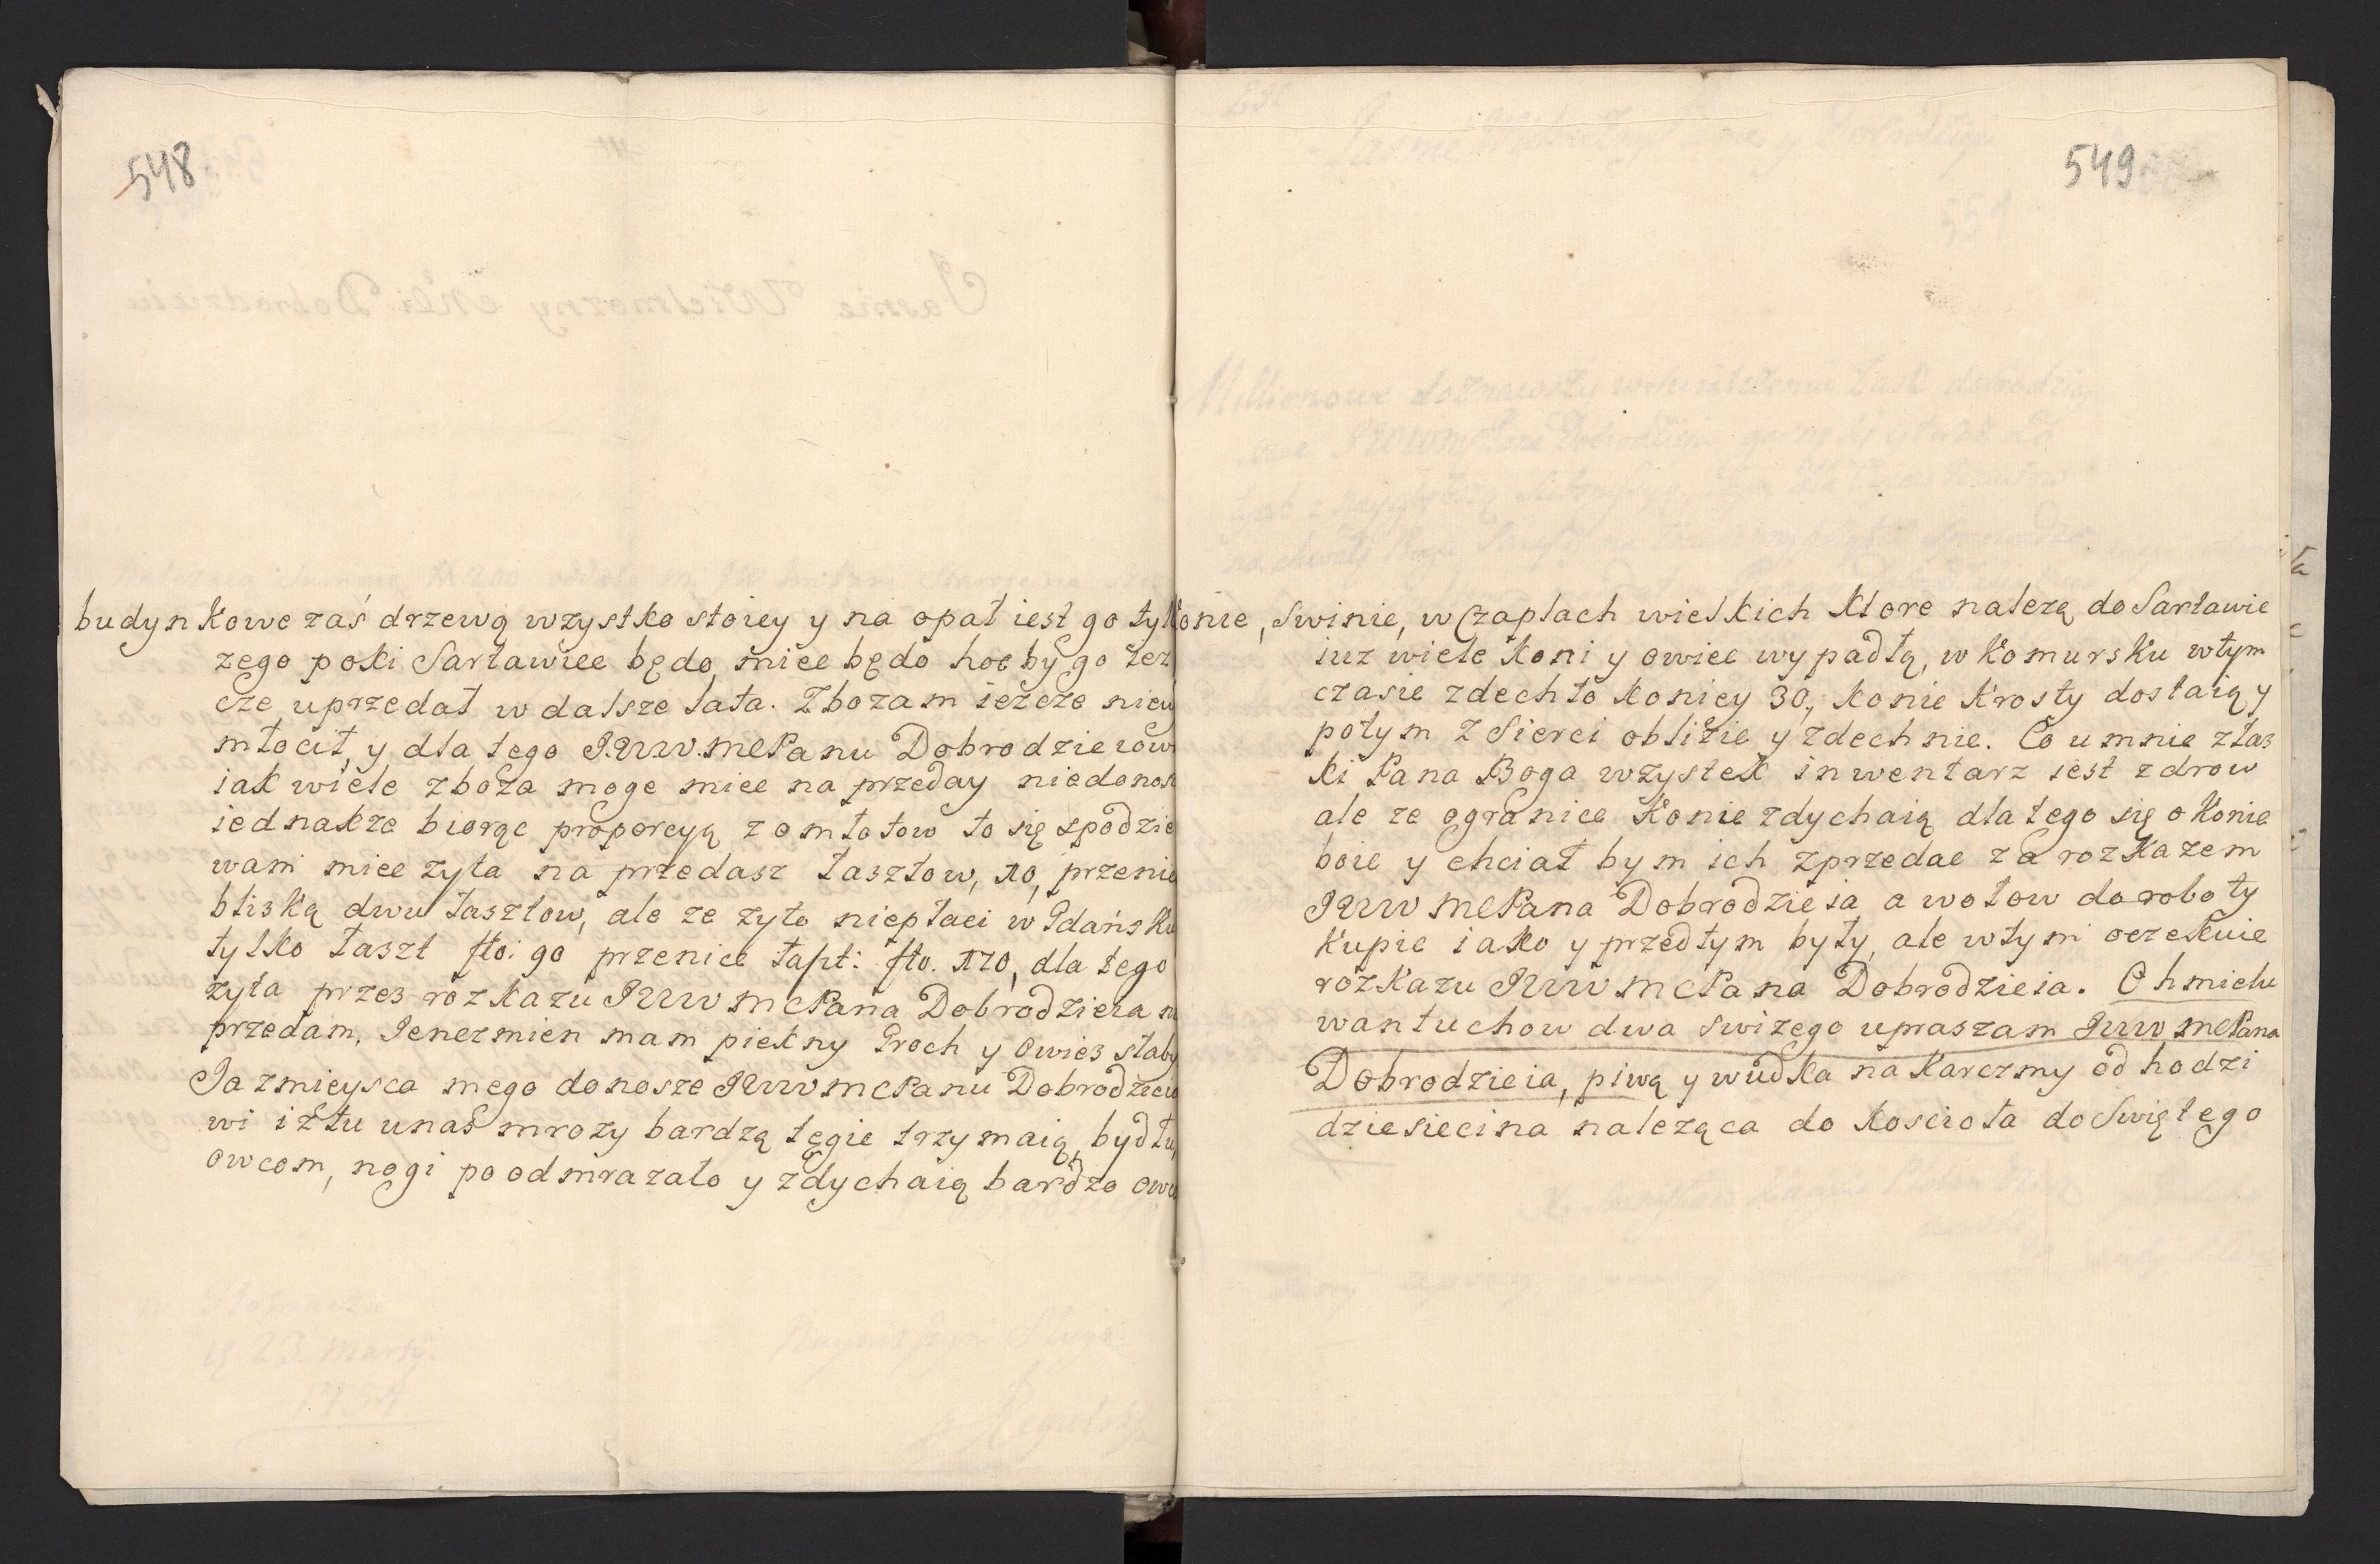 548
budynkowe zaś drzewą wzystko stoiey y na opał iest go tyl
zego poki Sartawice będo, miec będo hoc by go iez
cze uprzedał w dalsze lata. Zbozam iezcze nie
młocił, y dla tego JWW.MCPanu Dobrodzieiow
iak wiele zboza moge miec na przeday niedonos
iednakze biorąc proporcyą z omłotow to się spodzie
wam miec zyta na przedasz łasztow, 10, przenic
bliską dwu łasztow, ale ze zyto niepłaci w Gdańsku
tylko łaszt fło: 90 przenice łaszt: fło. 170, dla tego
zyta przez rozkazu JWW MCPana Dobrodzieia
przedam, Jenczmien mam piekny Groch y Owies słaby
Ja zmieysca mego donosze JWW MCPanu Dobrodzieio
wi iż tu unas mrozy bardzą tęgie trzymaią, bydłu,
owcom, nogi poodmrazało y zdychaią bardzo owce
549
Konie, Swinie, w Czaplach wielkich Ktore nalezą do Sartawic
iuz wiele Koni y owiec wypadłą, w Komursku wtym
czasie zdechło Konicy 30, Konie Krosty dostaią y
potym z Sierci oblizie y zdechnie. Co umnie złas
Ki Pana Boga wzystek inwentarz iest zdrow
ale ze ogranice Konie zdychaią dla tego się o Konie
boie y chciał bym ich zprzedac za rozkazem
JWW MCPana Dobrodzieia a wołow do roboty
Kupie iako y przedtym były, ale wtym oczekuie
rozkazu JWW MCPana Dobrodzieia. Chmielu
wantuchow dwa swizego upraszam JWW MCPana
Dobrodzieia, piwą y wudka na Karczmy odhodzi
dziesiecina naleząca do Kosciota do Swiętego